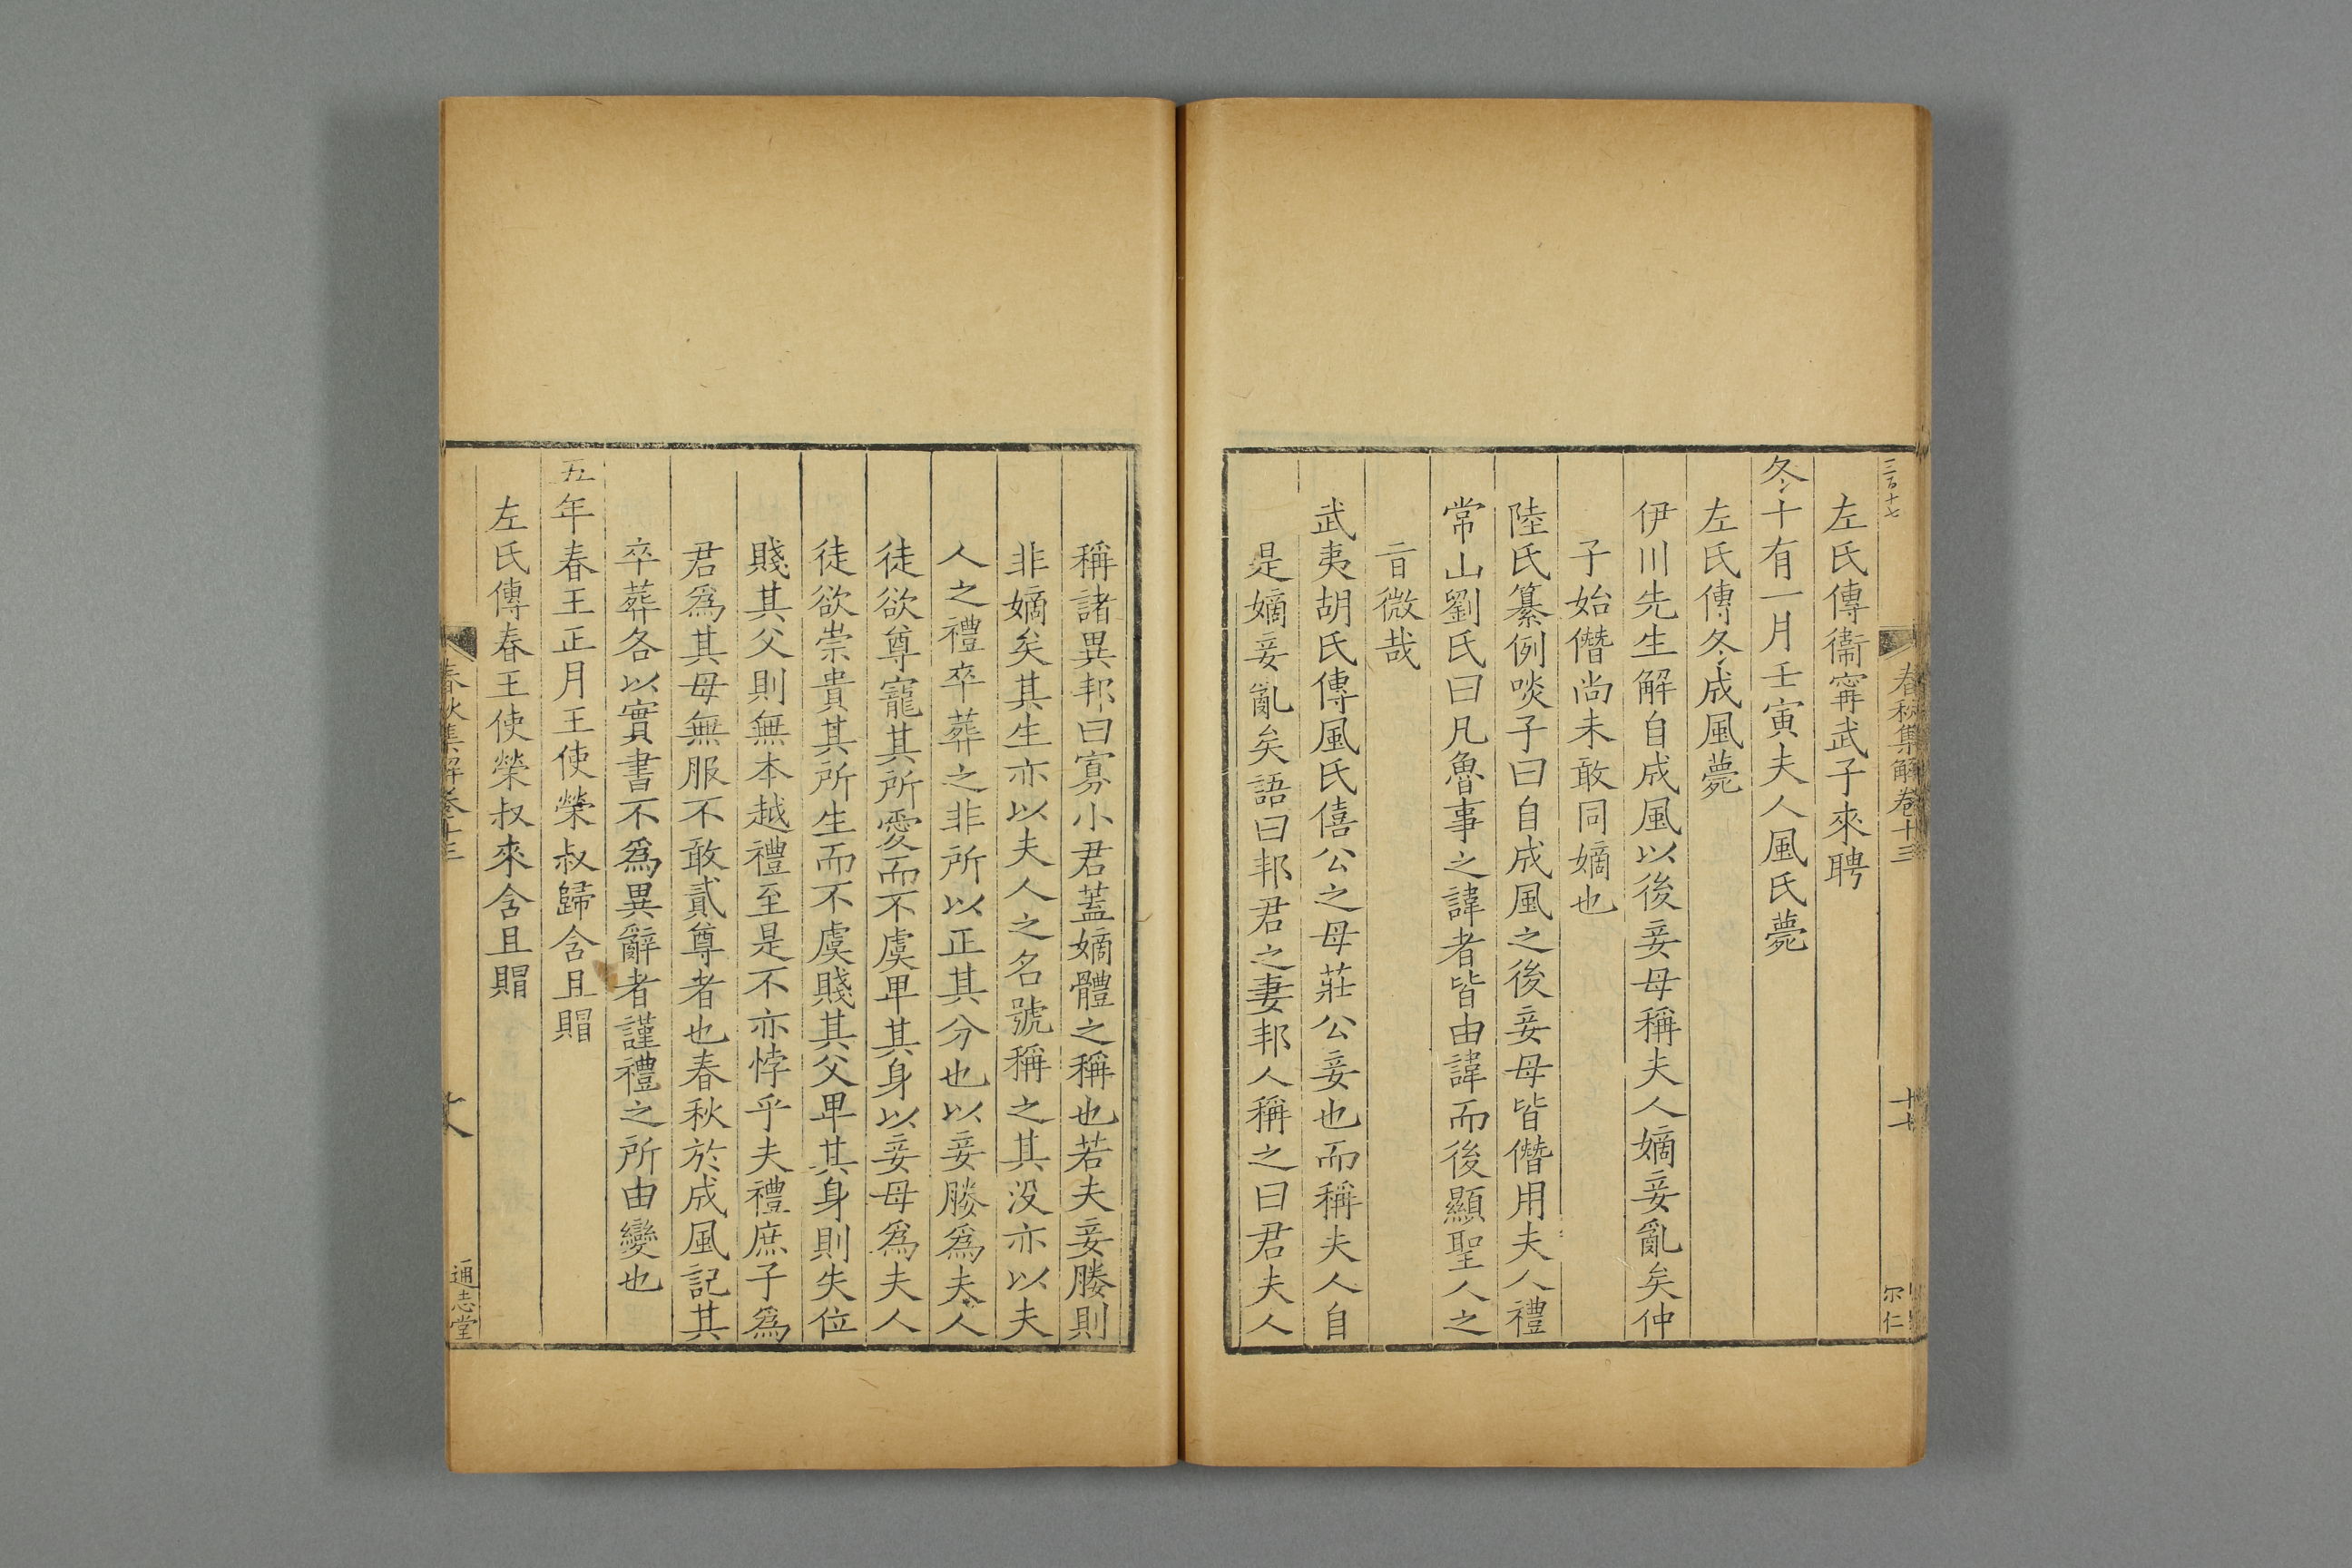 三百十七
春秋集解卷十三
十七
尔仁
左氏傳衞甯武子來聘
冬十有一月壬寅夫人風氏薨
左氏傳冬成風薨
伊川先生解自成風以後妾母稱夫人嫡妾亂矣仲
子始僭尚未敢同嫡也
陸氏纂例啖子曰自成風之後妾母皆僭用夫人禮
常山劉氏曰凡魯事之諱者皆由諱而後顯聖人之
㫖微哉
武夷胡氏傳風氏僖公之母莊公妾也而稱夫人自
是嫡妾亂矣語曰邦君之妻邦人稱之曰君夫人
稱諸異邦曰寡小君蓋嫡體之稱也若夫妾媵則
非嫡矣其生亦以夫人之名號稱之其没亦以夫
人之禮卒葬之非所以正其分也以妾媵爲夫人
徒欲尊寵其所愛而不虞卑其身以妾母爲夫人
徒欲崇貴其所生而不虞賤其父卑其身則失位
賤其父則無本越禮至是不亦悖乎夫禮庶子爲
君爲其母無服不敢貳尊者也春秋於成風記其
卒葬各以實書不爲異辭者謹禮之所由變也
五年春王正月王使榮叔歸含且賵
左氏傳春王使榮叔來含且賵
春秋集解卷十三
通志堂